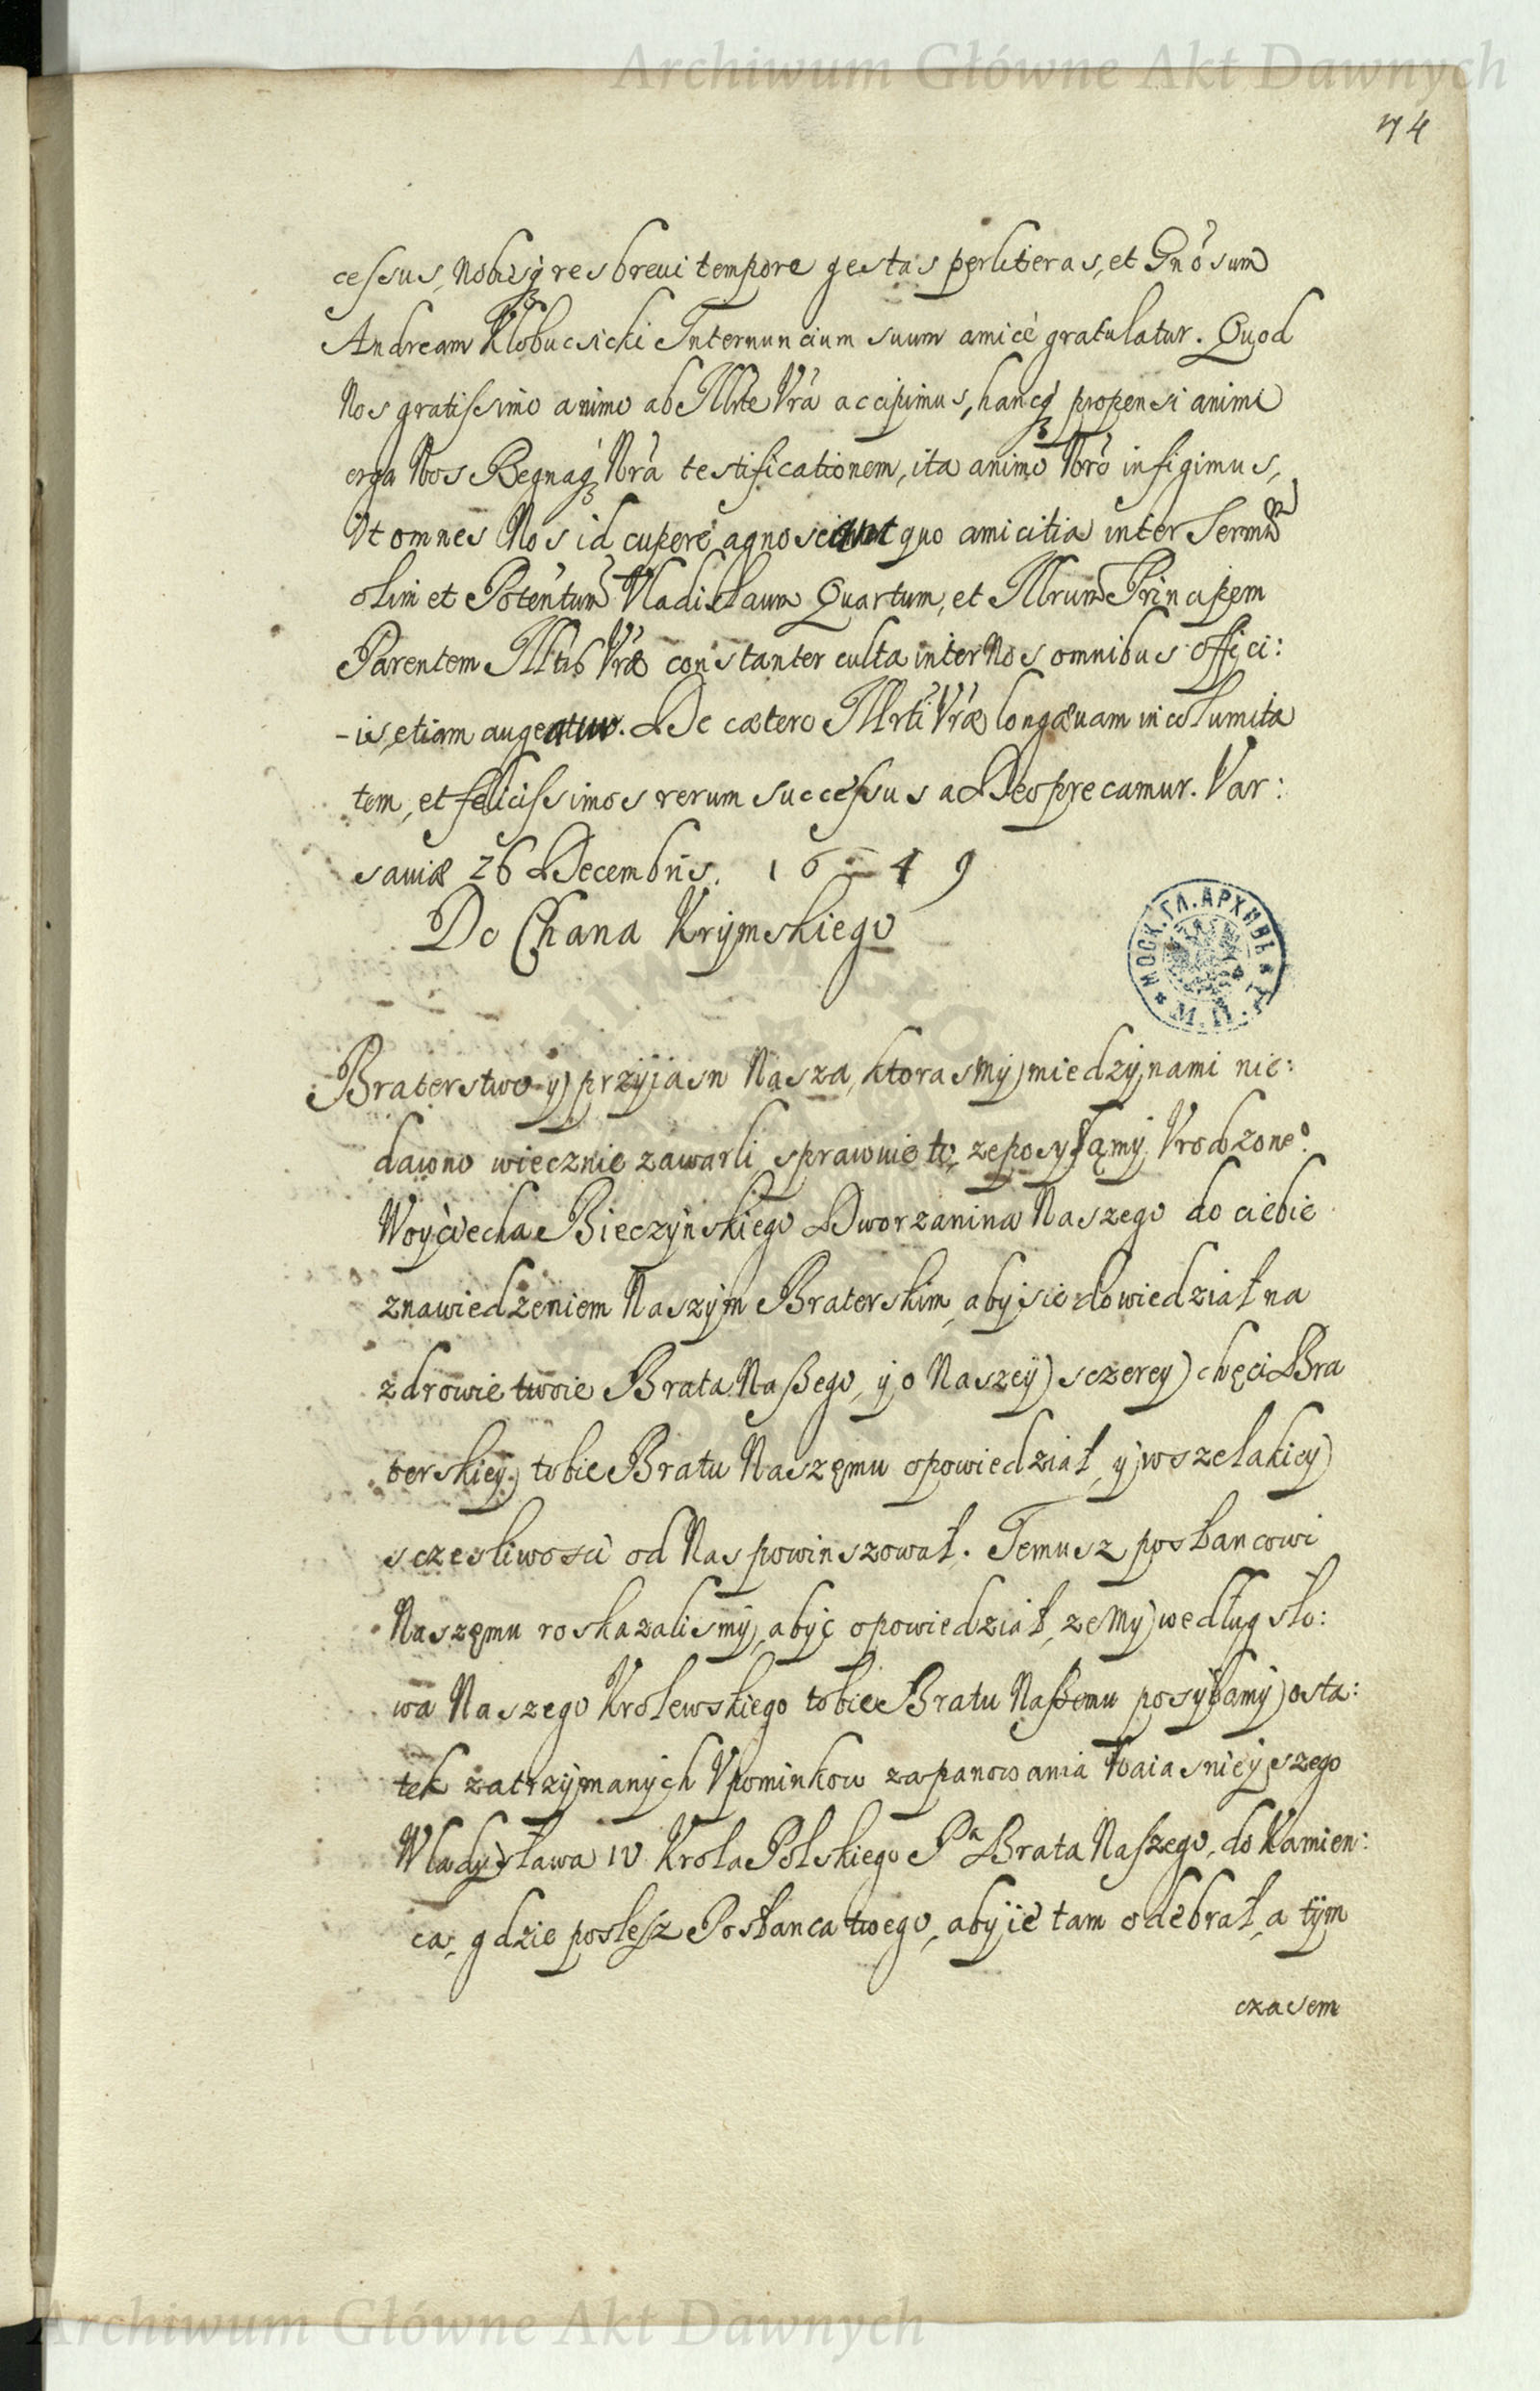 Archiwum Główne Akt Dawnych
74
cessus, Nobisq́ꝫ res breui tempore gestas per literas, et Gnõsum
Andream Klobucsicki Internuncium suum amicè gratulatur. Quod
Nos gratissimo animo ab Illrte Vrã accipimus, hancq́ꝫ propensi animi
erga Nos Regnaq́ꝫ Nrã testificationem, ita animo Nrõ infigimus,
Vt omnes Nos id cupere agnoscant quo amicitia inter Sermũ
olim et Potentum Vladislaum Quartum, et Illrum Principem
Parentem Illtis Vræ constanter culta inter Nos omnibus offici:
-is etiam augeatur. De cætero Illrti Vræ longævam incolumita
tem, et felicissimos rerum successus a Deo precamur. Var:
saviæ 26 Decembris. 1649
Do Chana Krymskiego
МОСК. ГЛ. АРХИВЪ
Braterstwo y przyjasn Nasza, ktorasmy miedzy nami nie:
dawno wiecznie zawarli, sprawuie to, ze posyłamy Vrodzoneº
Woyciecha Bieczynskiego Dworzanina Naszego do ciebie
znawiedzeniem Naszym Braterskim, aby sie dowiedział na
zdrowie twoie Brata Naßego, y o Naszey sczerey chęci Bra
terskiey tobie Bratu Naszęmu opowiedział, y wszelakiey
sczesliwosci od Nas powinszował. Temusz posłancowi
Naszęmu roskazalismy, abyć opowiedział, ze My według sło:
wa Naszego Krolewskiego tobie Bratu Naßemu posyłamy osta:
tek zatrzymanych Vpominkow za panowania Naiasnieyszego
Władysława IV Krola Polskiego Pª Brata Naszego, do Kamien:
ca, gdzie poslesz Posłanca twego, aby ie tam odebrał, a tym
czasem
Archiwum Główne Akt Dawnych